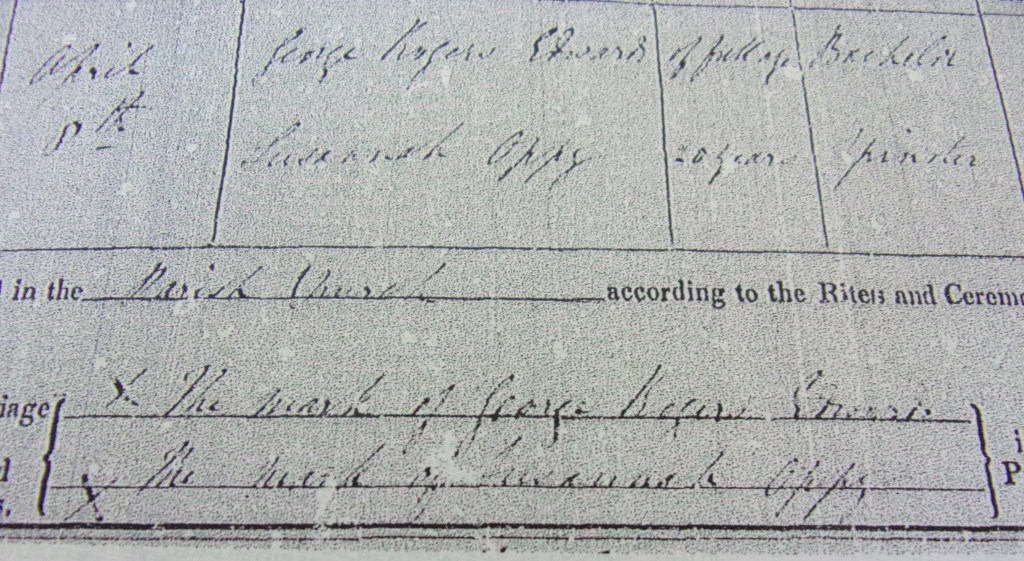 April George Rogers Edwards of full age Bachelor
8th Susannah Oppy 20 years Spinster
in the Parish Church according to the Rites and Cerem
iage X The mark of George Rogers Edwards i
X The mark of Susannah Oppy P